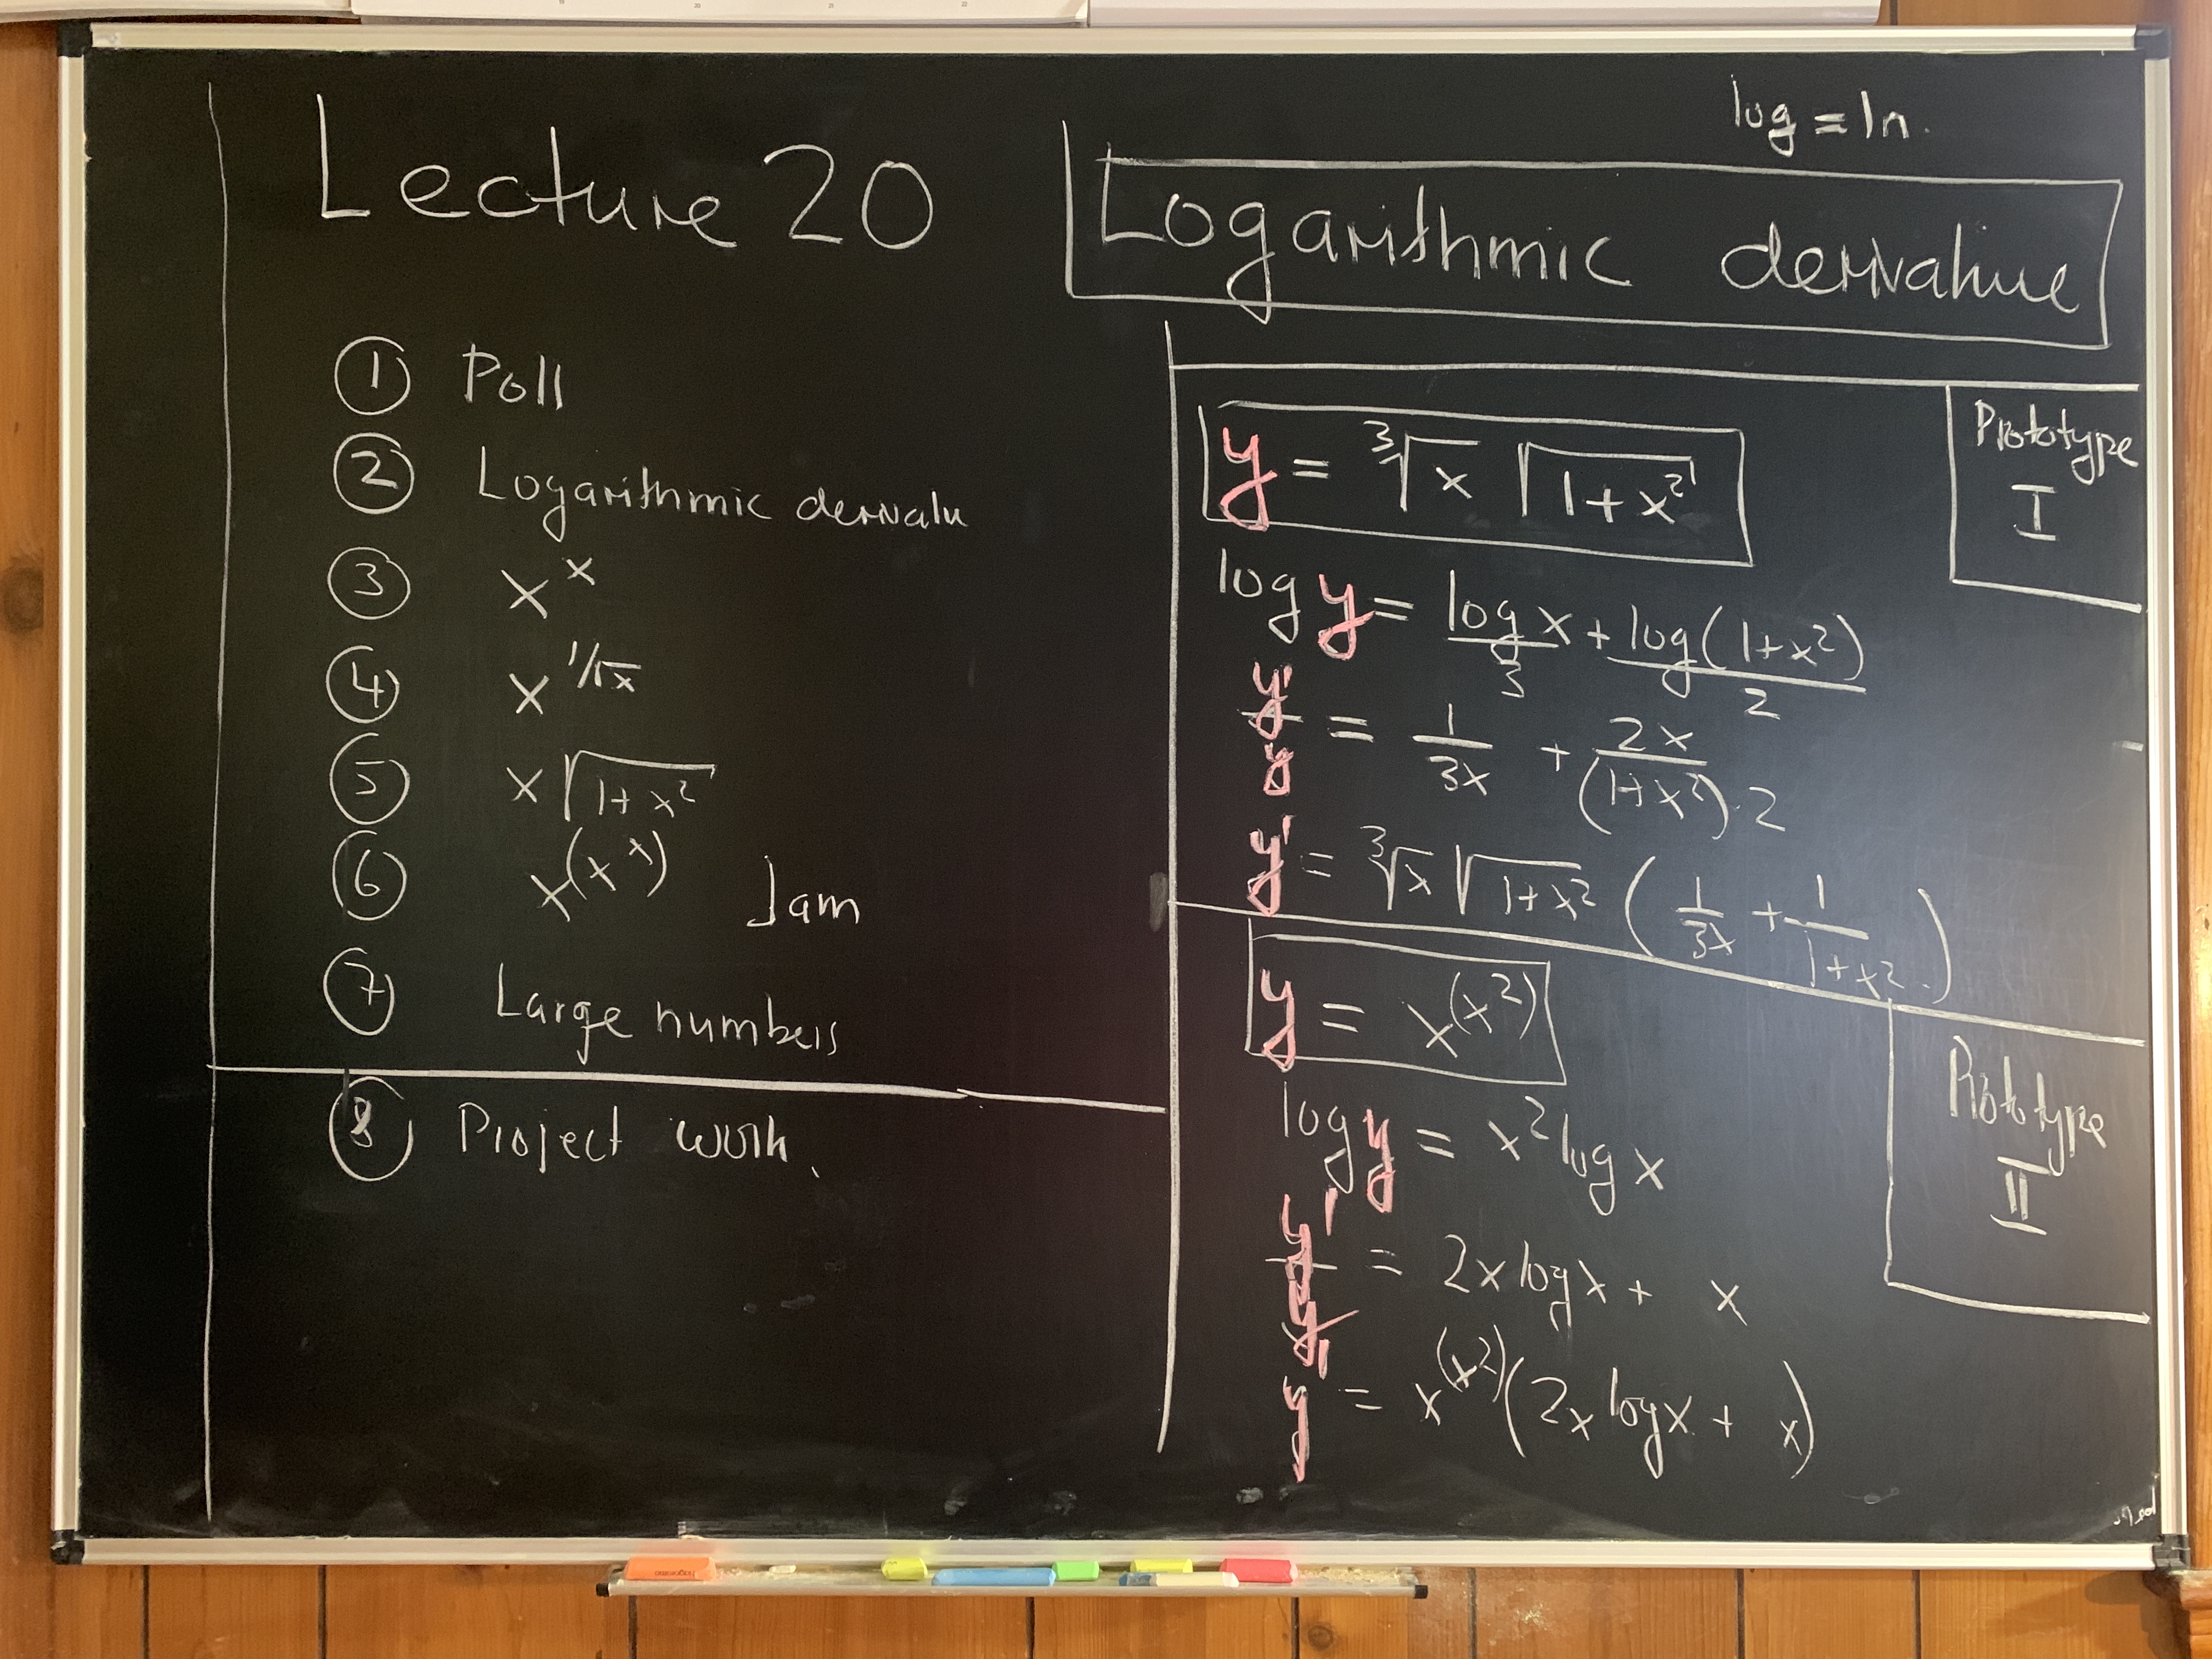 Lecture 20
① Poll
② Logarithmic derivatu
③ x^x
④ x^(1/√x)
⑤ x √(1+x²)
⑥ x^(x^x) Jam
⑦ Large numbers
⑧ Project work.
log = ln.
Logarithmic derivative
Prototype I
y = ³√x √(1+x²)
log y = log x/3 + log(1+x²)/2
y'/y = 1/(3x) + 2x/((1+x²)·2)
y' = ³√x √(1+x²) (1/(3x) + 1/(1+x²))
Prototype II
y = x^(x²)
log y = x² log x
y'/y = 2x log x + x
y' = x^(x²) (2x log x + x)